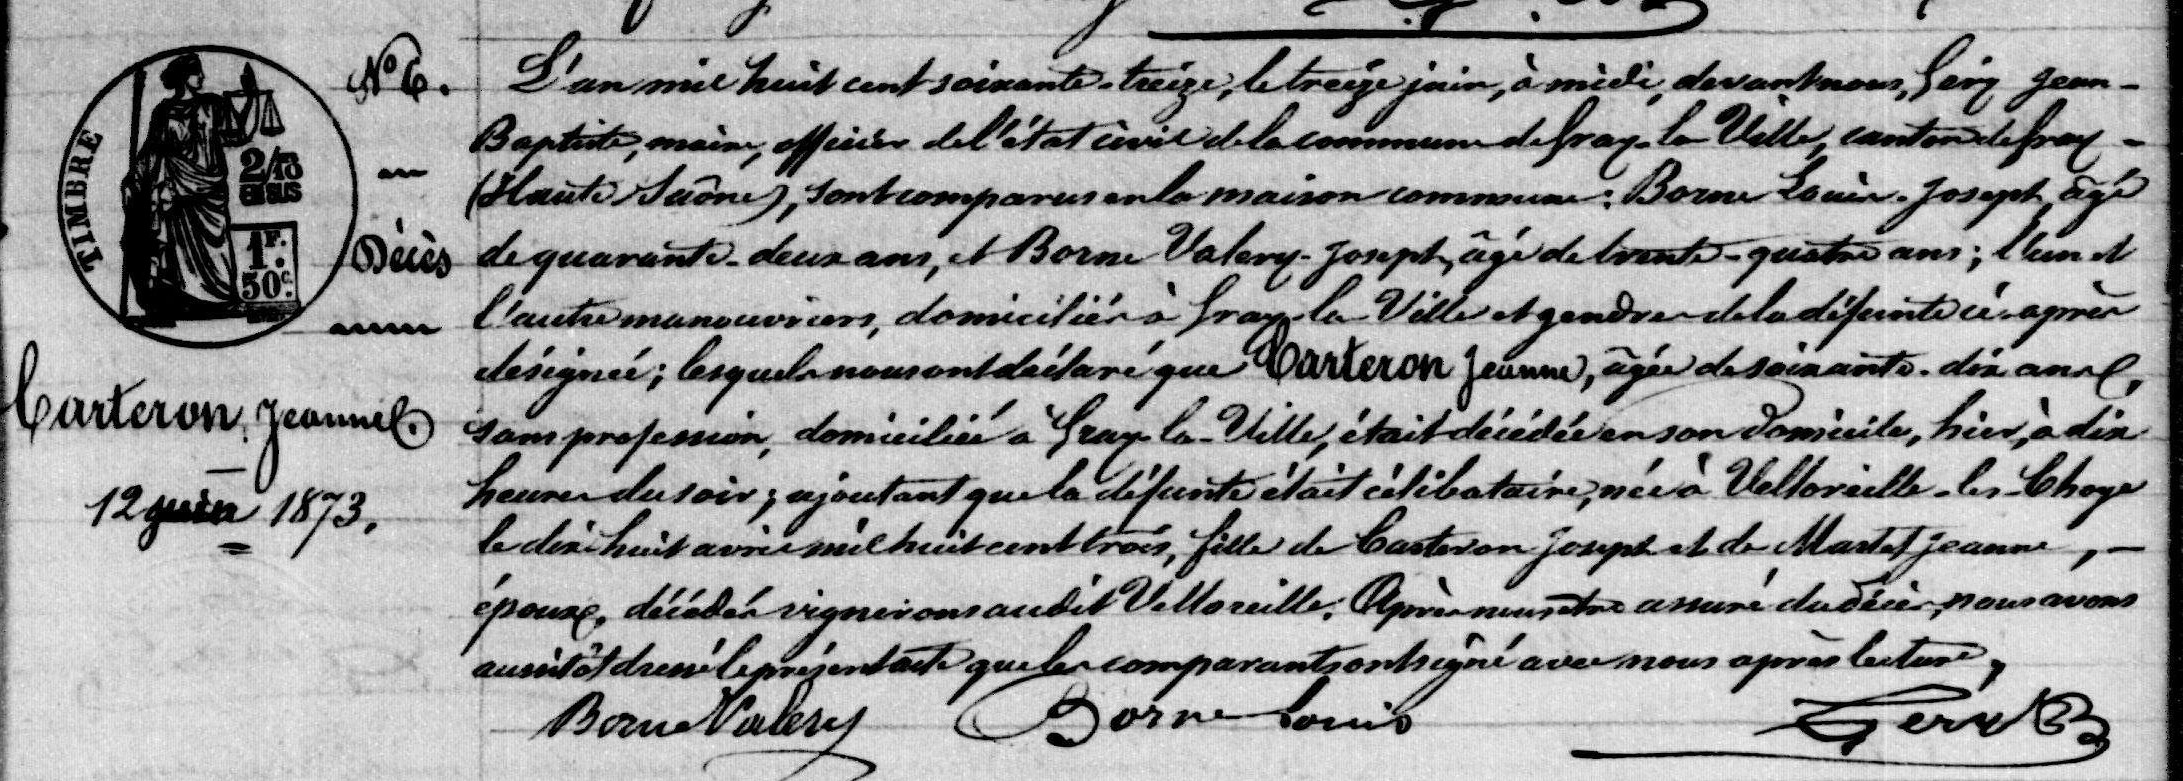 TIMBRE
2/10
EN SUS
1F.
50c.
N° 6.
Décès
Carteron, Jeanne.
12 juin 1873.
L'an mil huit cent soixante-treize, le treize juin, à midi, devant nous, Géry Jean-
Baptiste, maire, officier de l'état civil de la commune de Gray-la-Ville, canton de Gray -
(Haute Saône), sont comparus en la maison commune : Borne Louis-Joseph, âgé
de quarante-deux ans, et Borne Valery-Joseph, âgé de trente-quatre ans ; l'un et
l'autre manouvriers, domiciliés à Gray-la-Ville et gendres de la défunte ci-après
désignée ; lesquels nous ont déclaré que Carteron Jeanne, âgée de soixante-dix ans,
sans profession, domiciliée à Gray-la-Ville, était décédée en son domicile, hier, à dix
heures du soir ; ajoutant que la défunte était célibataire, née à Velloreille-les-Choye
le dix huit avril mil huit cent trois, fille de Carteron Joseph et de Jeanne, -
époux, décédés vignerons audit Velloreille. Après nous être assuré du décès, nous avons
aussitôt dressé le présent acte que les comparants ont signé avec nous après lecture,
Borne Valery Borne Louis Géry JB